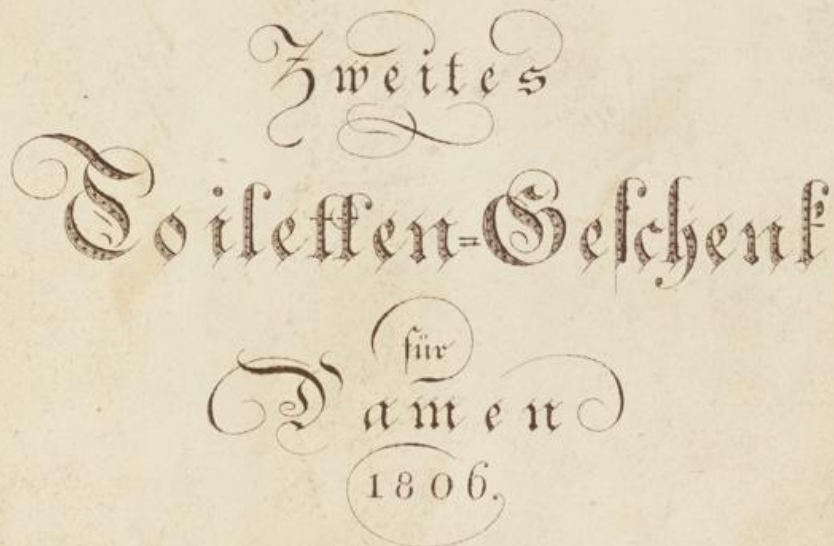 Zweites
Toiletten=Geschenk
für
Damen
1806.